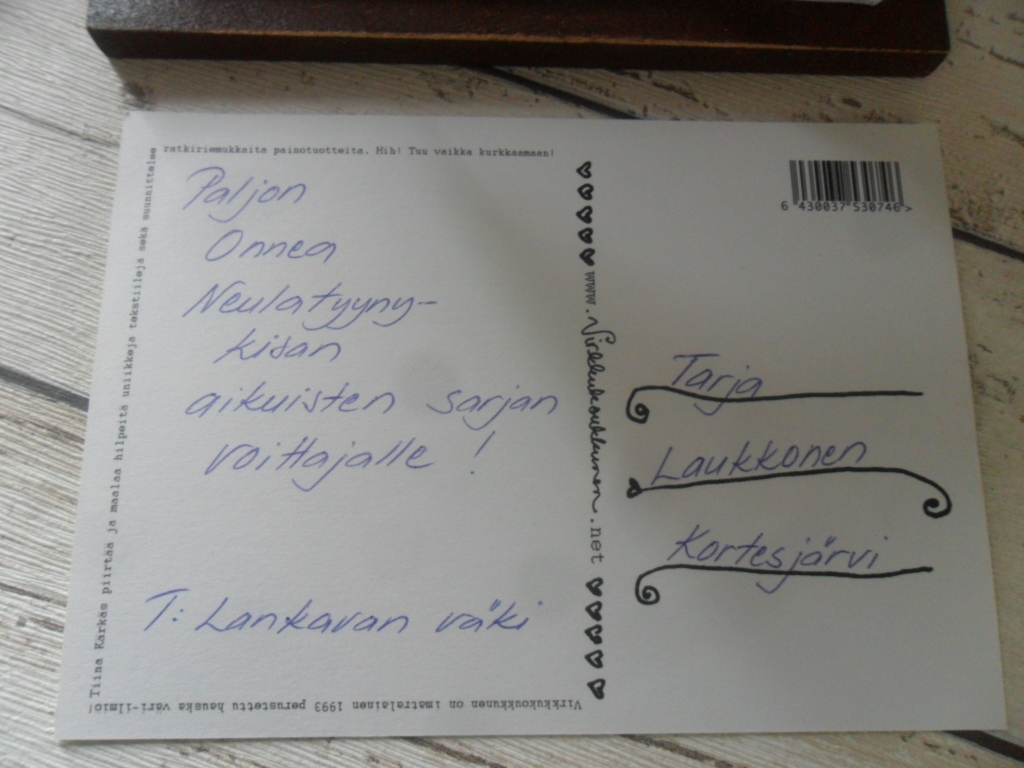 Virkkukoukkunen on imatralainen 1993 perustettu hauska väri-ilmiö!
Tiina Karkas piirtää ja maalaa hilpeitä uniikkeja tekstiilejä sekä suunnittelee
ratkiriemukkaita painotuotteita. Hih! Tuu vaikka kurkkaamaan!
Paljon
Onnea
Neulatyyny-
kisan
aikuisten sarjan
voittajalle !
T: Lankavan väki
www.Virkkukoukkunen.net
6 430037 530746 >
Tarja
Laukkonen
Kortesjärvi